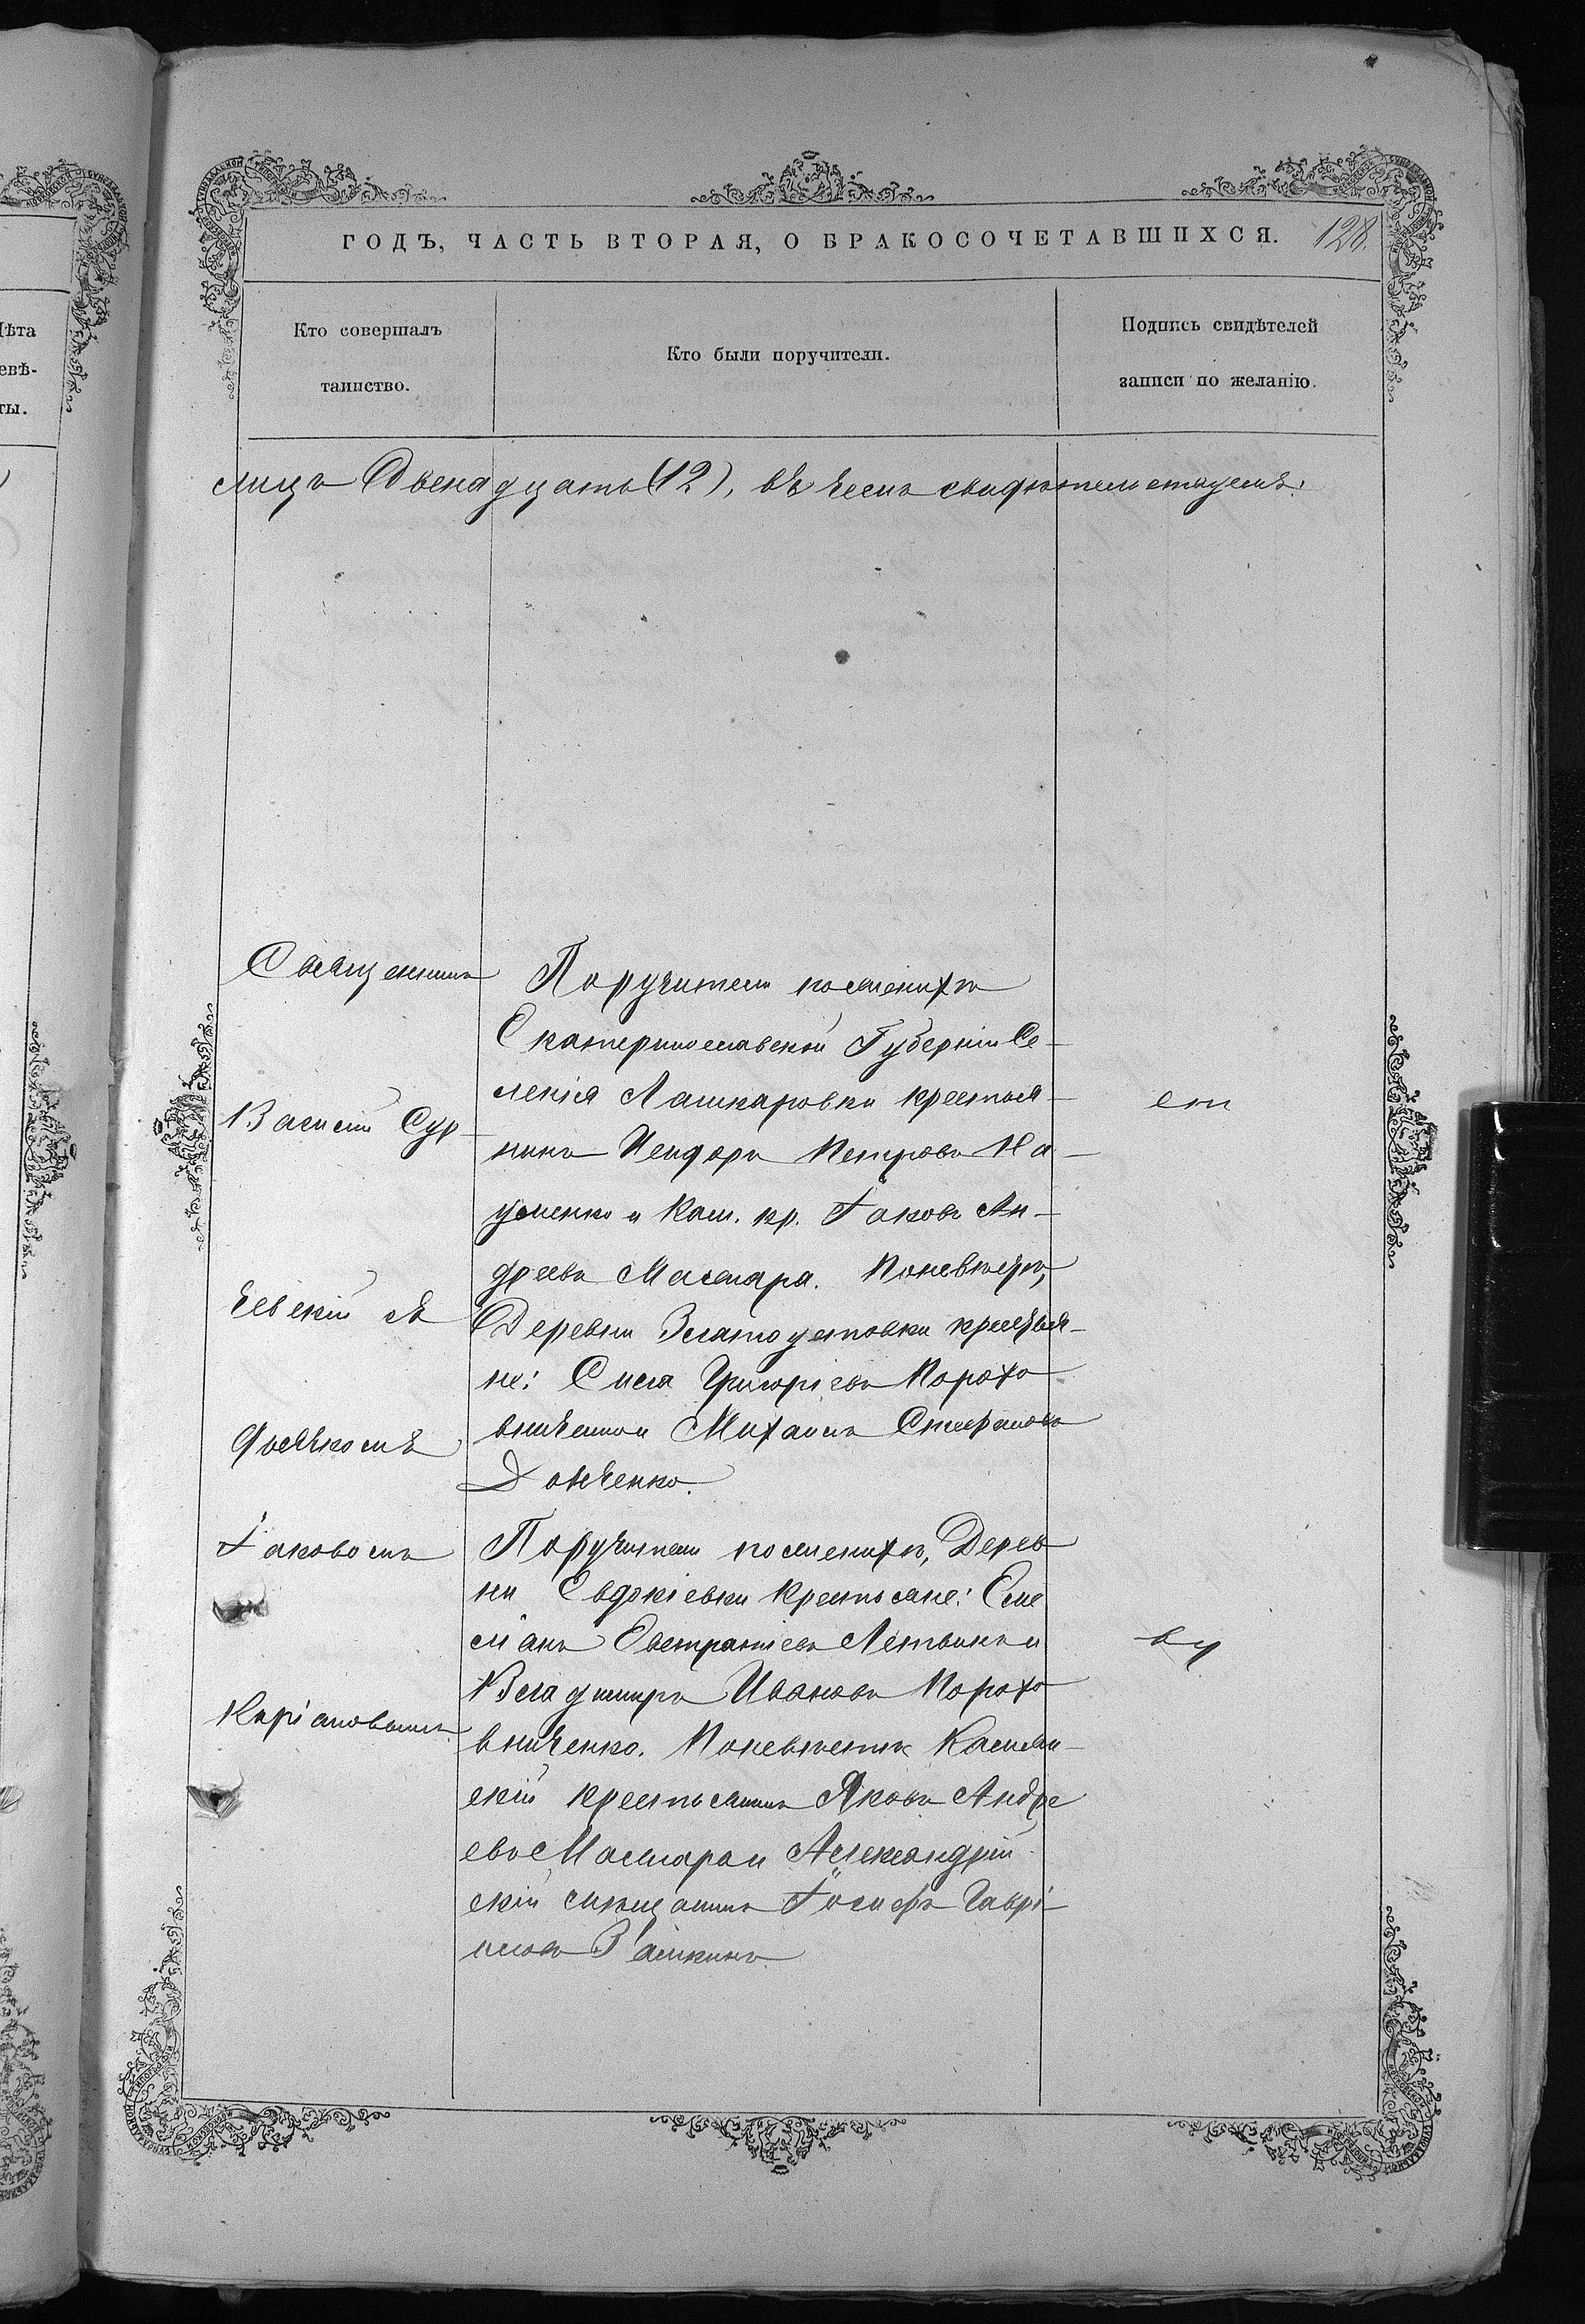 ГОДЪ, ЧАСТЬ ВТОРАЯ, О БРАКОСОЧЕТАВШИХСЯ. 128
Кто совершалъ
таинство.
Кто были поручители.
Подпись свидѣтелей
записи по желанію.
лицъ Двенадцать (12), въ чемъ свидѣтельствуемъ:
Священникъ
Василій Сур-
чевскій съ
дьячкомъ
Іаковомъ
Кипріановымъ
Поручители по женихѣ
Екатеринославской Губерніи Се-
ленія Лашкаровки крестья-
нинъ Исидоръ Петровъ На-
уменко и Каш. кр. Іаковъ Ан-
дреевъ Масмара. По невѣстѣ,
Деревни Златоустовки крестья-
не: Сила Григоріевъ Порохо
вниченко и Михаилъ Стефановъ
Донченко.
Поручители по женихѣ, Дерев
ни Евдокіевки Крестьяне: Еме
ліанъ Евстратіевъ Летвинъ и
Владимиръ Ивановъ Порохо
вниченко. По невѣстѣ
скій крестьянинъ Яковъ Андре
евъ Масмара и Александрій
скій мѣщанинъ Іосифъ Гаврі-
иловъ
ѣта
евѣ-
ты.